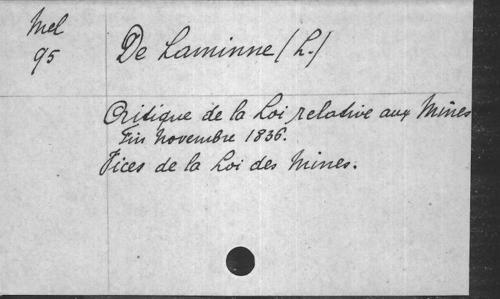 Mel
95
De Laminne (L.)
Critique de la Loi relative aux Mines
Fin Novembre 1836.
Vices de la Loi des Mines.